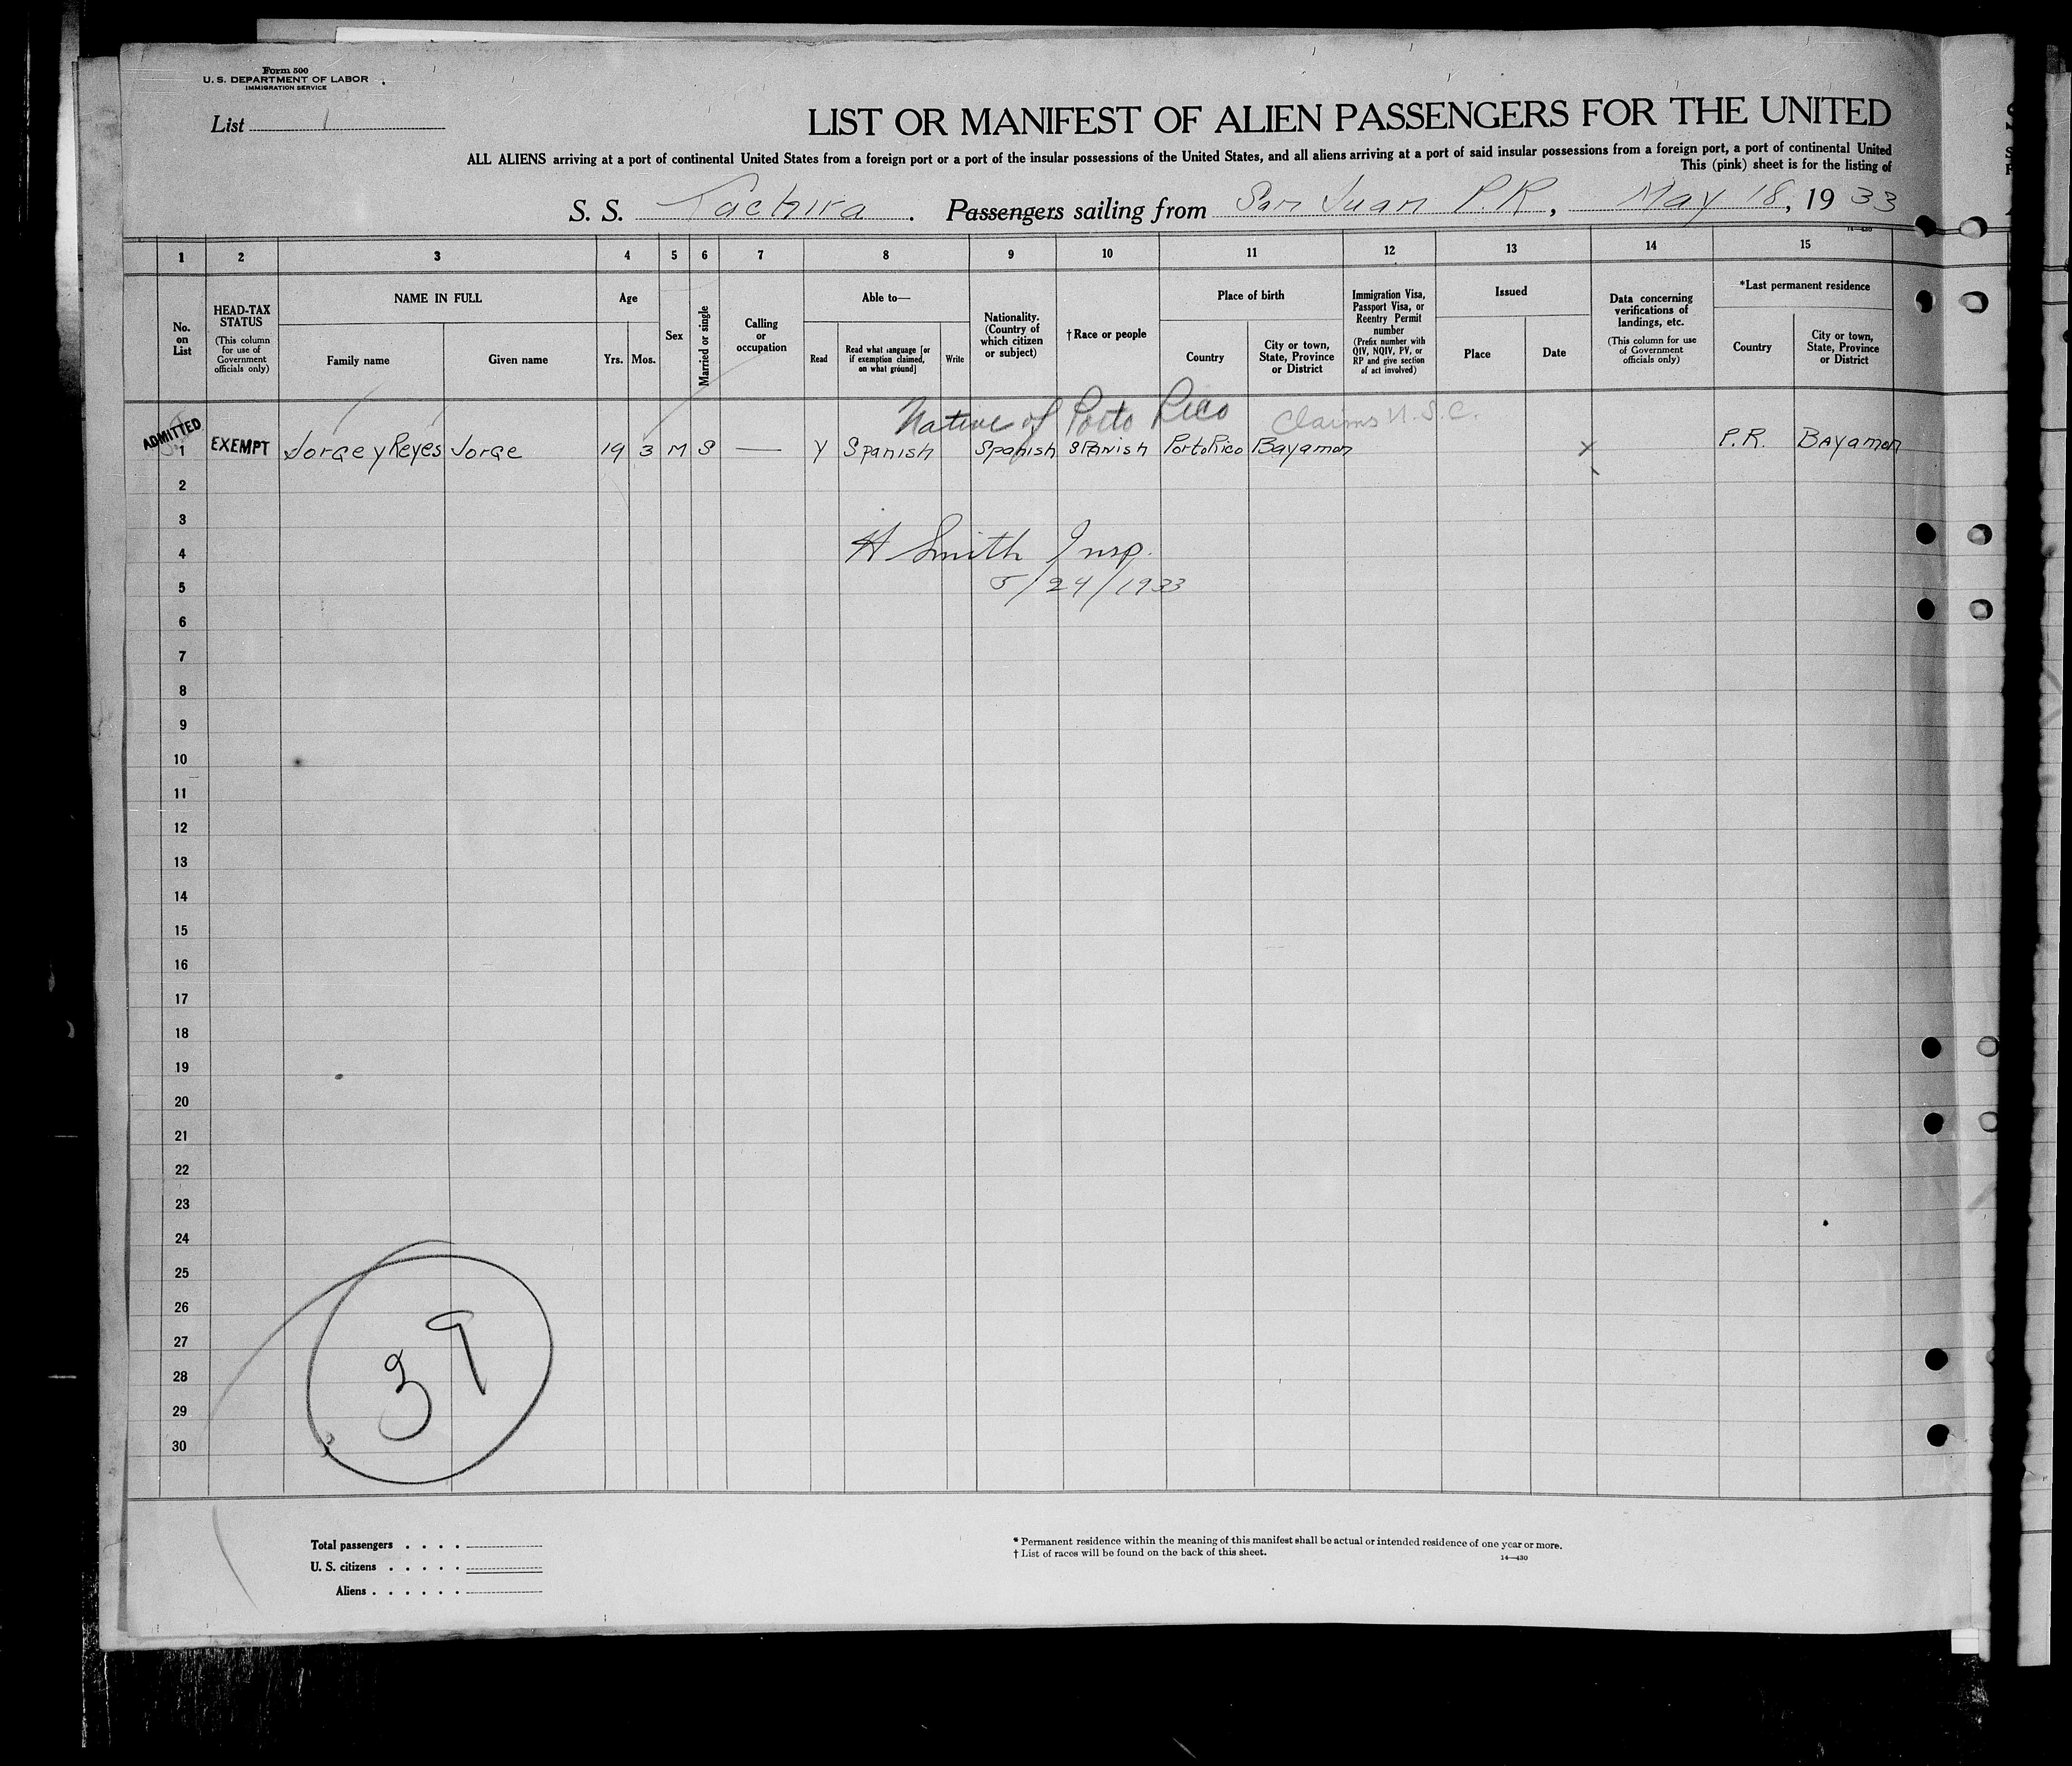 Form 500
U. S. DEPARTMENT OF LABOR
IMMIGRATION SERVICE
List 1
LIST OR MANIFEST OF ALIEN PASSENGERS FOR THE UNITED
ALL ALIENS arriving at a port of continental United States from a foreign port or a port of the insular possessions of the United States, and all aliens arriving at a port of said insular possessions from a foreign port, a port of continental United
This (pink) sheet is for the listing of
S. S. Tachira. Passengers sailing from San Juan P.R, May 18, 1933
1 2 3 4 5 6 7 8 9 10 11 12 13 14 15
No. on List
HEAD-TAX STATUS
(This column for use of Government officials only)
NAME IN FULL
Family name
Given name
Age
Yrs.
Mos.
Sex
Married or single
Calling or occupation
Able to—
Read
Read what language [or if exemption claimed, on what ground]
Write
Nationality. (Country of which citizen or subject)
†Race or people
Place of birth
Country
City or town, State, Province or District
Immigration Visa, Passport Visa, or Reentry Permit number
(Prefix number with QIV, NQIV, PV, or RP and give section of act involved)
Issued
Place
Date
Data concerning verifications of landings, etc.
(This column for use of Government officials only)
*Last permanent residence
Country
City or town, State, Province or District
Native of Porto Rico Claims U.S.C.
ADMITTED
1 EXEMPT Jorge y Reyes Jorge 19 3 M S — Y Spanish Spanish Spanish Porto Rico Bayamon x P.R. Bayamon
2
3
4 H Smith Insp.
5 5/24/1933
6
7
8
9
10
11
12
13
14
15
16
17
18
19
20
21
22
23
24
25
26
27
28
29
30
39
Total passengers . . . .
U. S. citizens . . . . .
Aliens . . . . . .
* Permanent residence within the meaning of this manifest shall be actual or intended residence of one year or more.
† List of races will be found on the back of this sheet.
14—430